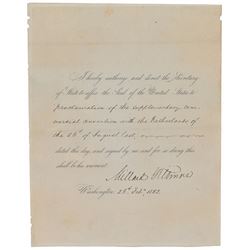 I hereby authorize and direct the Secretary
of State to affix the Seal of the United States to
proclamation of the supplementary com-
mercial convention with the Netherlands of
the 26th of August last,
dated this day, and signed by me and for so doing this
shall be his warrant.
Millard Fillmore
Washington, 26th Feby. 1853.